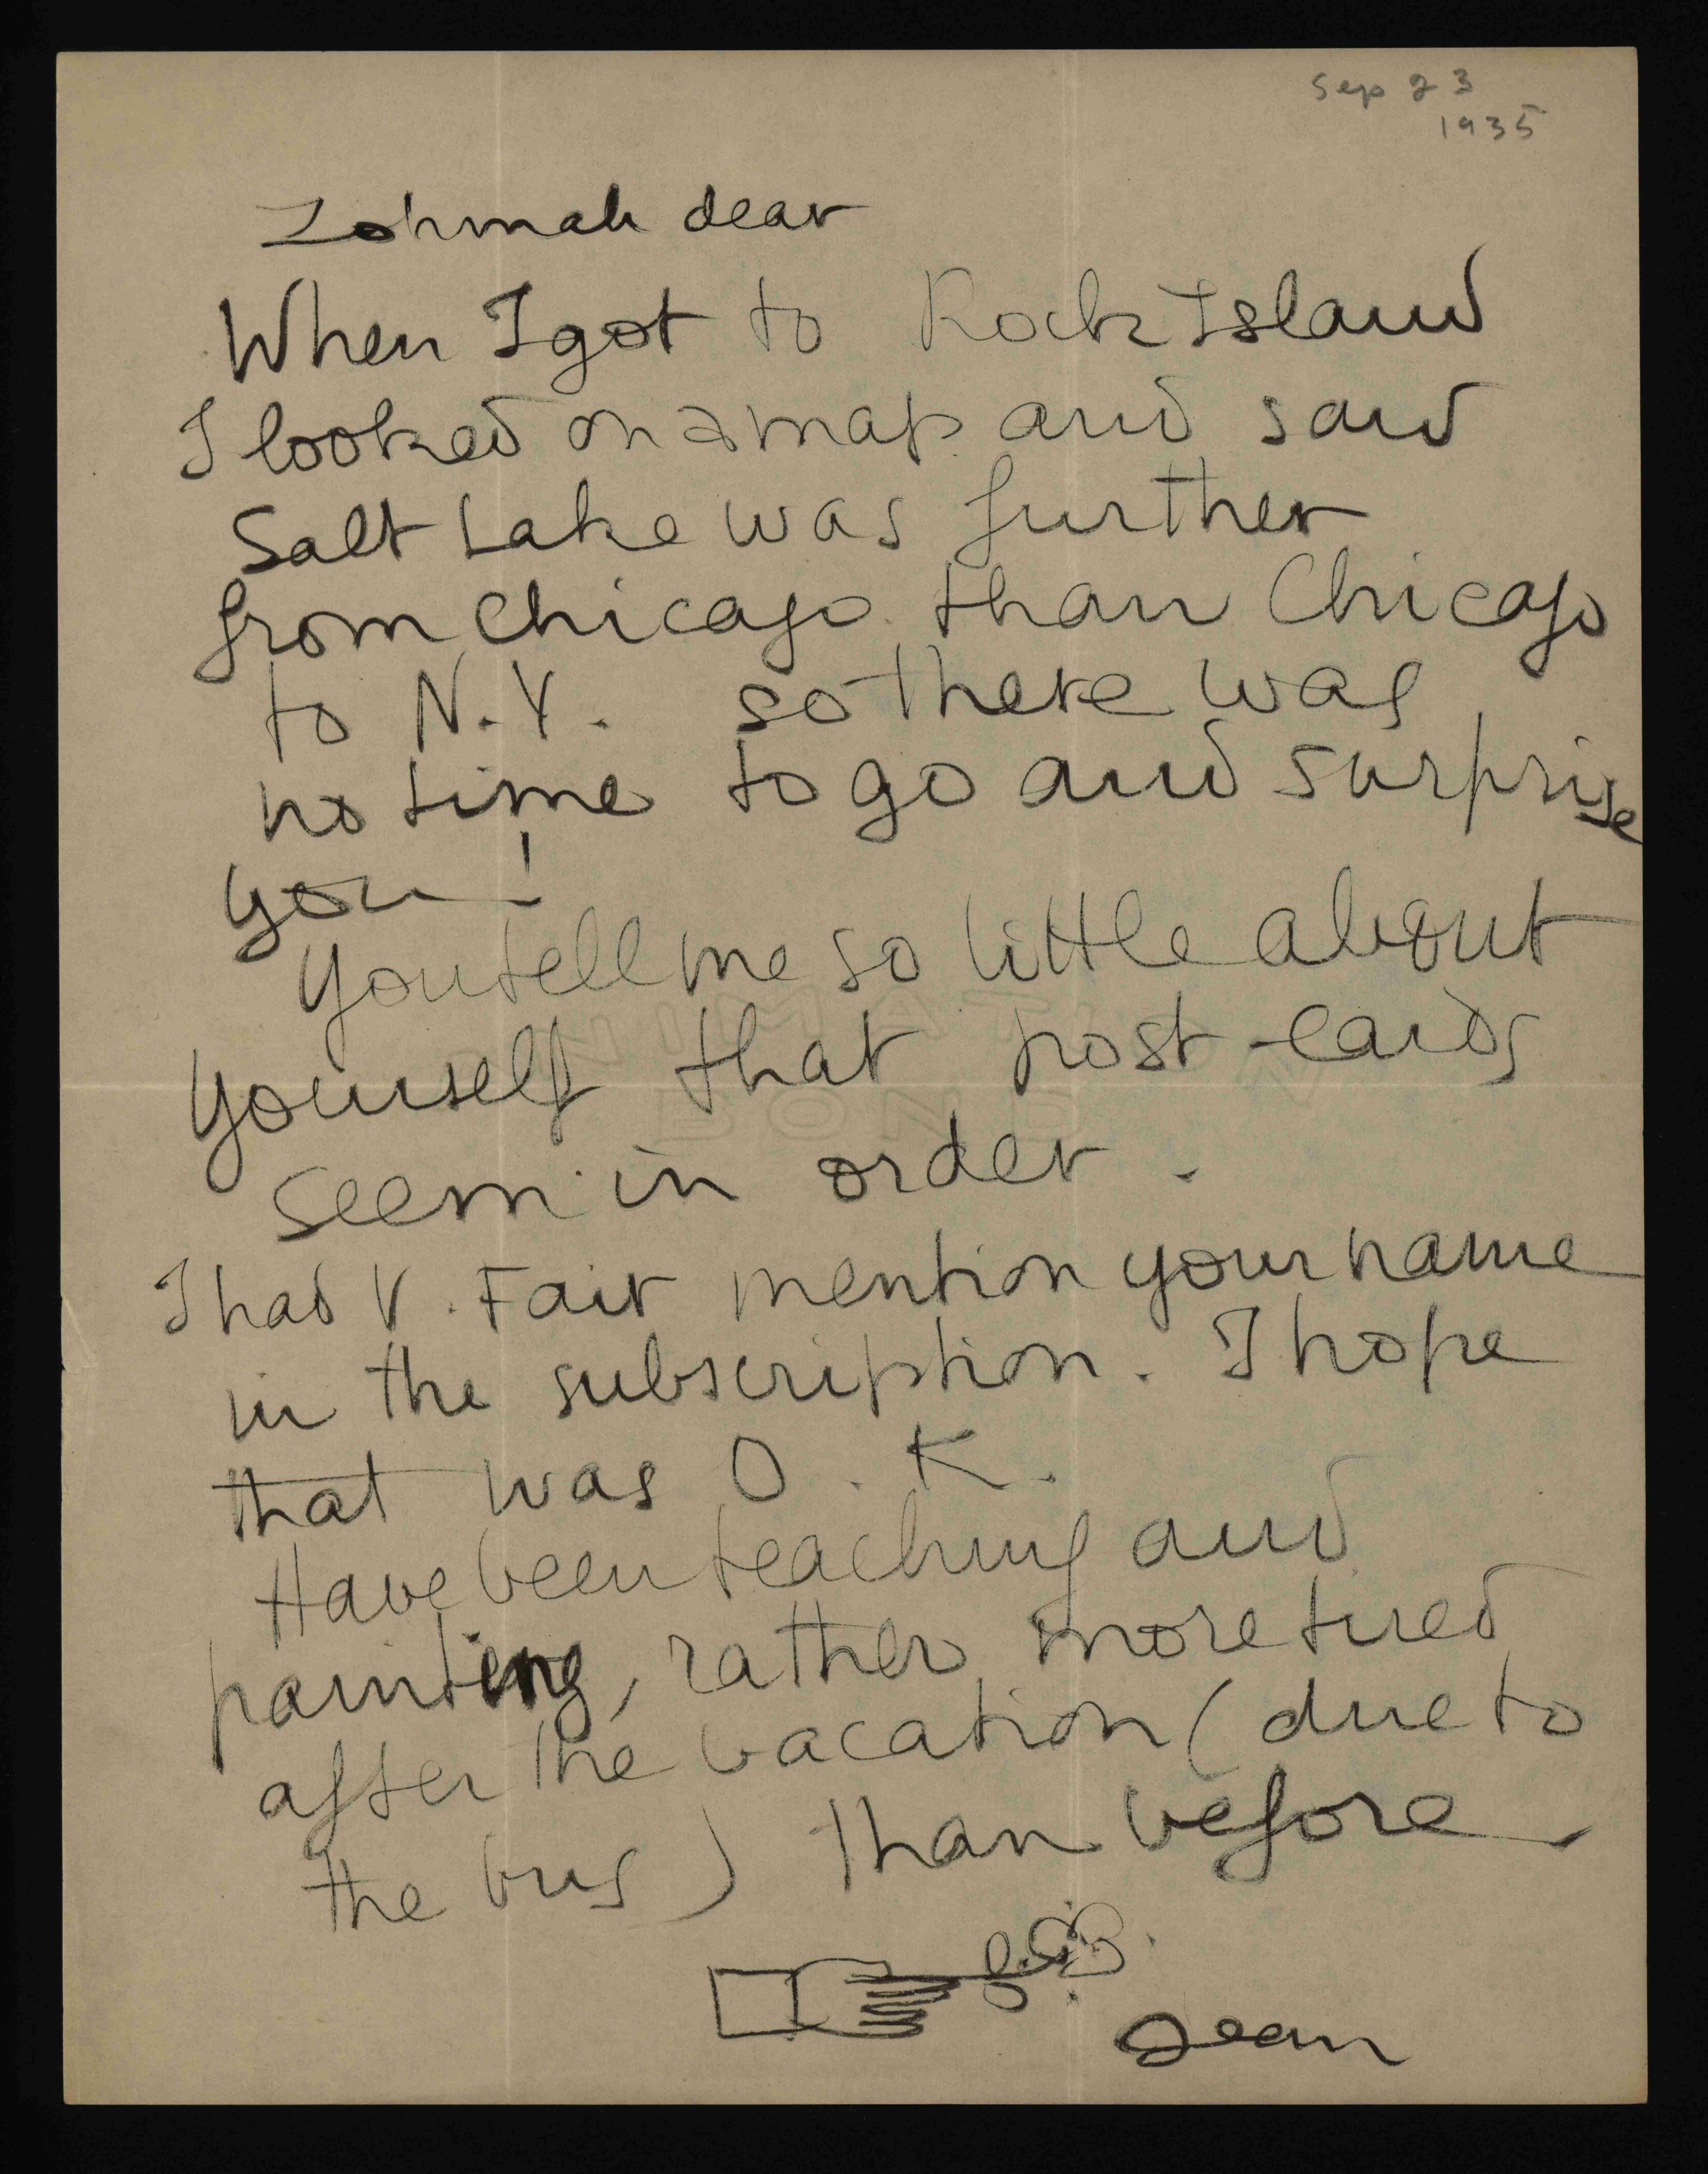 Sep 23
1935
Zohmah dear
When I got to Rock Island
I looked on a map and saw
Salt Lake was further
from Chicago than Chicago
to N.Y. so there was
no time to go and surprise
you!
You tell me so little about
yourself that post-cards
seem in order.
I had V. Fair mention your name
in the subscription. I hope
that was O.K.
Have been teaching and
painting, rather more tired
after the vacation (due to
the bus) than before
Jean